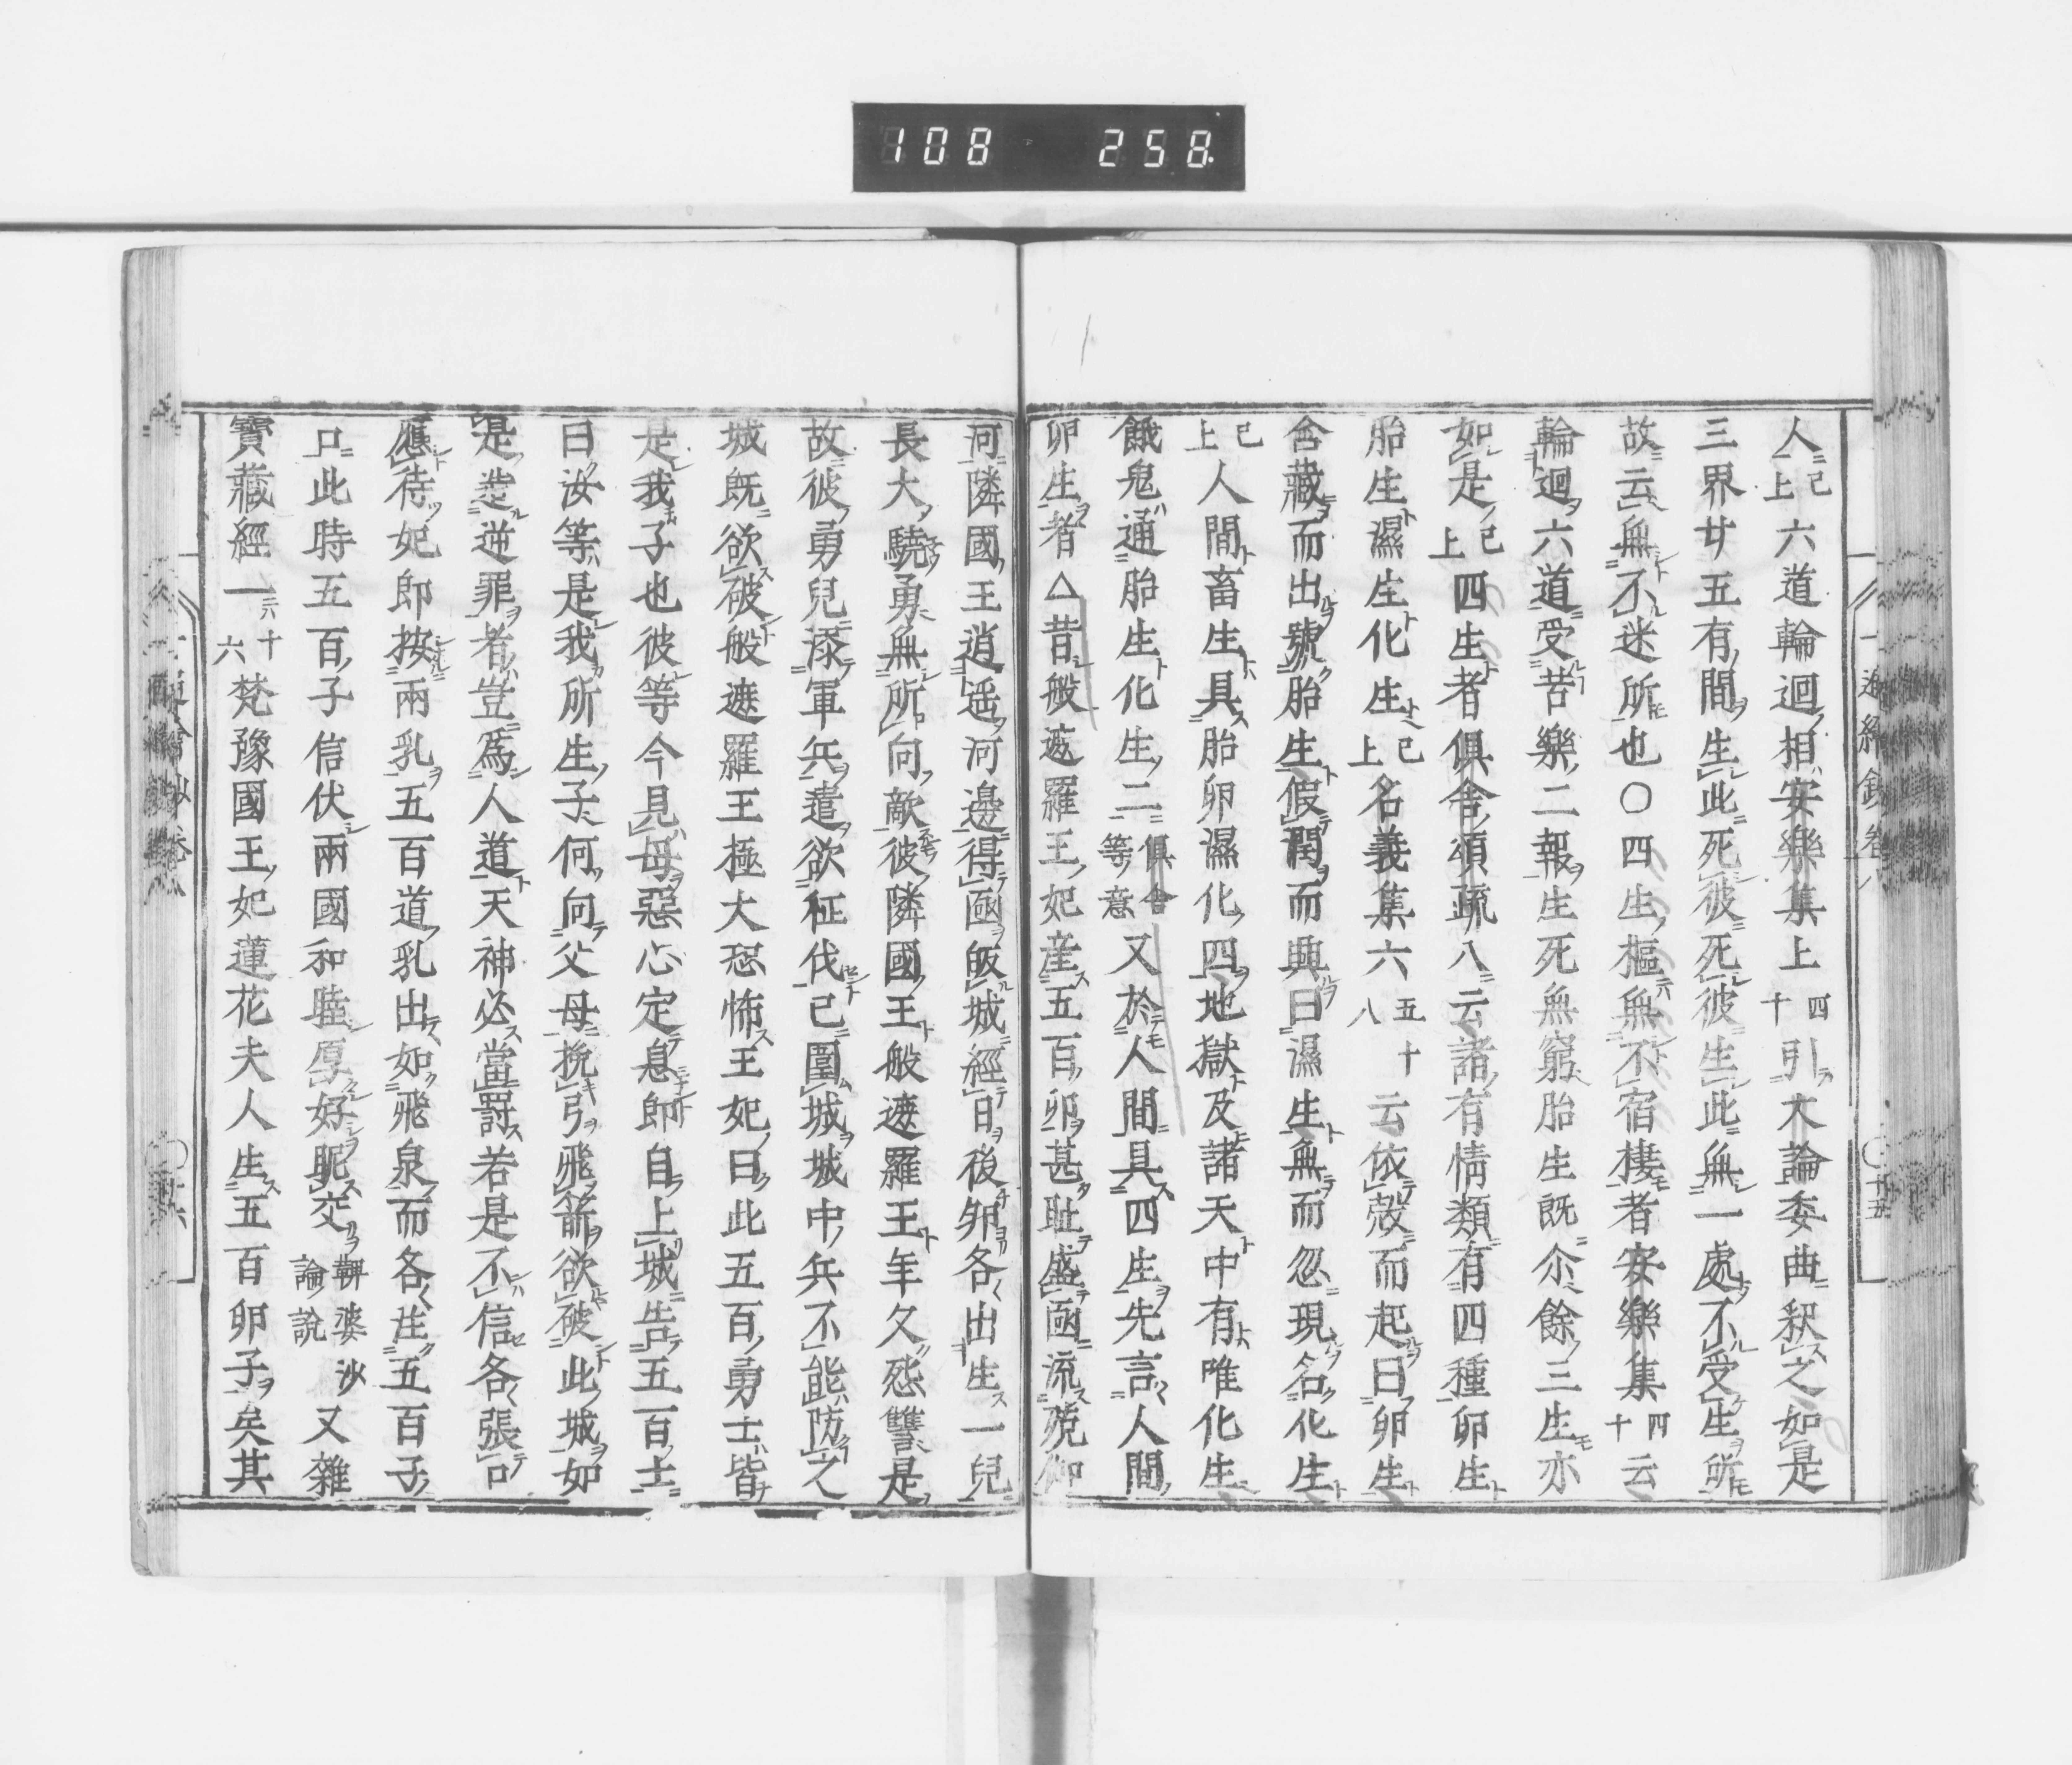 108 258
人已上六道輪迴相安樂集上四十引大論委曲釈之如是
三界廿五有間生此死彼死彼生此無一處不受生所
故云無不迷所也○四生樞無不宿棲者安樂集四十云
輪迴六道受苦樂二報生死無窮胎生既尒餘三生亦
如是已上四生者俱舍頌疏八云諸有情類有四種卵生
胎生濕生化生已上名義集六五十八云依殼而起曰卵生
含藏而出號胎生假潤而興曰濕生無而忽現名化生
已上人間畜生具胎卵濕化四地獄及諸天中有唯化生
餓鬼通胎生化生二俱舍等意又於人間具四生先言人間
卵生者△昔般遮羅王妃産五百卵甚耻盛凾流殑伽
河隣國王逍遥河邊得凾皈城經日後卵各出生一兒
長大驍勇無所向敵彼隣國王般遮羅王年久怨讐是
故彼勇兒添軍兵遣欲征伐已圍城城中兵不能防之
城既欲破般遮羅王極大恐怖王妃曰此五百勇士皆
是我子也彼等今見母惡心定息即自上城告五百士
曰汝等是我所生子何向父母挽引飛箭欲破此城如
是造逆罪者豈為人道天神必當罸若是不信各張口
應待妃即按兩乳五百道乳出如飛泉而各注五百子
口此時五百子信伏兩國和睦厚好昵交鞞婆沙論說又雜
寶藏經一十六梵豫國王妃蓮花夫人生五百卵子矣其